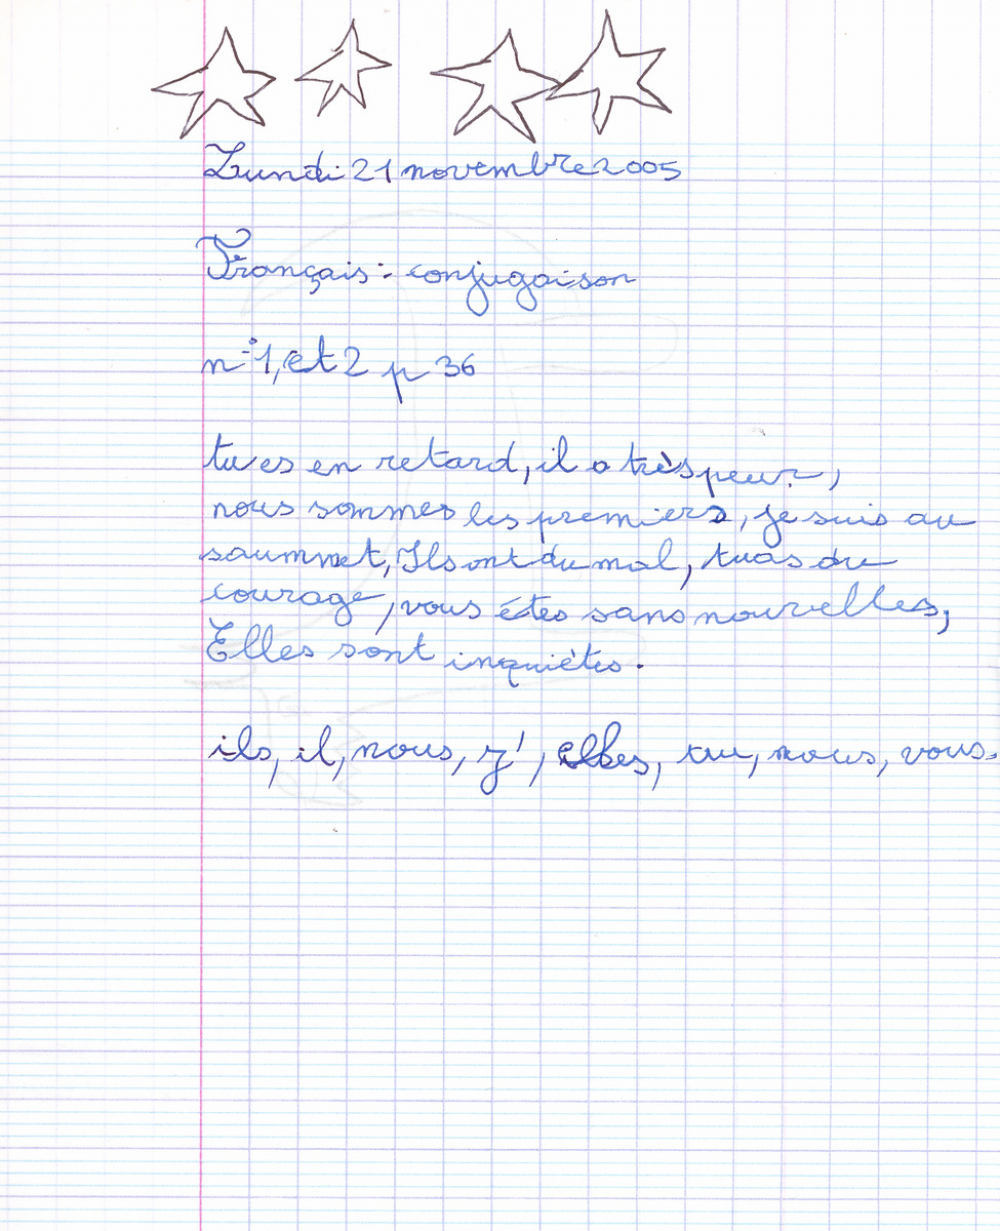 Lundi 21 novembre 2005
Français : conjugaison
n°1, et 2 p 36
tu es en retard, il a très peur,
nous sommes les premiers, je suis au
saummet, Ils ont du mal, tu as du
courage, vous étes sans nouvelles,
Elles sont inquiètes.
ils, il, nous, j', elles, tu, nous, vous.